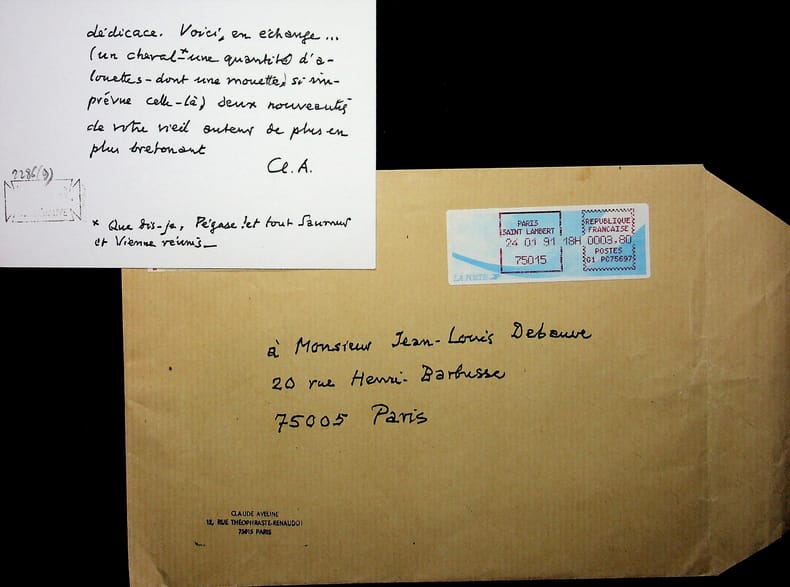 dédicace. Voici, en échange...
(un cheval*-une quantité d'a-
louettes-dont une mouette, si im-
prévue celle-là) deux nouveautés
de votre vieil auteur de plus en
plus bretonnant
Cl. A.
2286(9)
* Que dis-je, Pégase! et tout Saumur
et Vienne réunis_
PARIS
SAINT LAMBERT
24 01 91 18H
75015
REPUBLIQUE
FRANCAISE
0003.80
POSTES
G1 PC75697
LA POSTE
à Monsieur Jean-Louis Debauve
20 rue Henri-Barbusse
75005 Paris
CLAUDE AVELINE
12, RUE THÉOPHRASTE-RENAUDOT
75015 PARIS